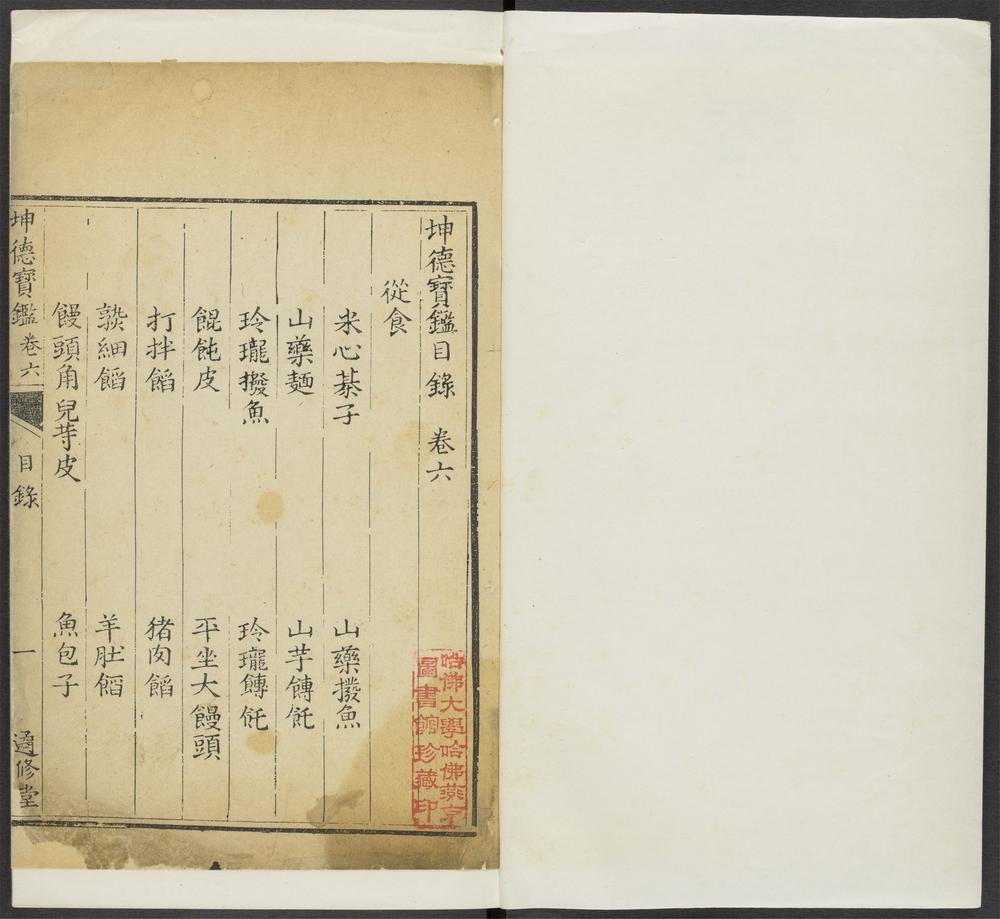 坤德寶鑑目錄 卷六
從食
米心棊子 山藥撥魚
山藥麵 山芋餺飥
玲瓏撥魚 玲瓏餺飥
餛飩皮 平坐大饅頭
打拌餡 猪肉餡
熟細餡 羊肚餡
饅頭角兒䓁皮 魚包子
坤德寶鑑卷六 目錄 一 適修堂
哈佛大學哈佛燕京
圖書館珍藏印